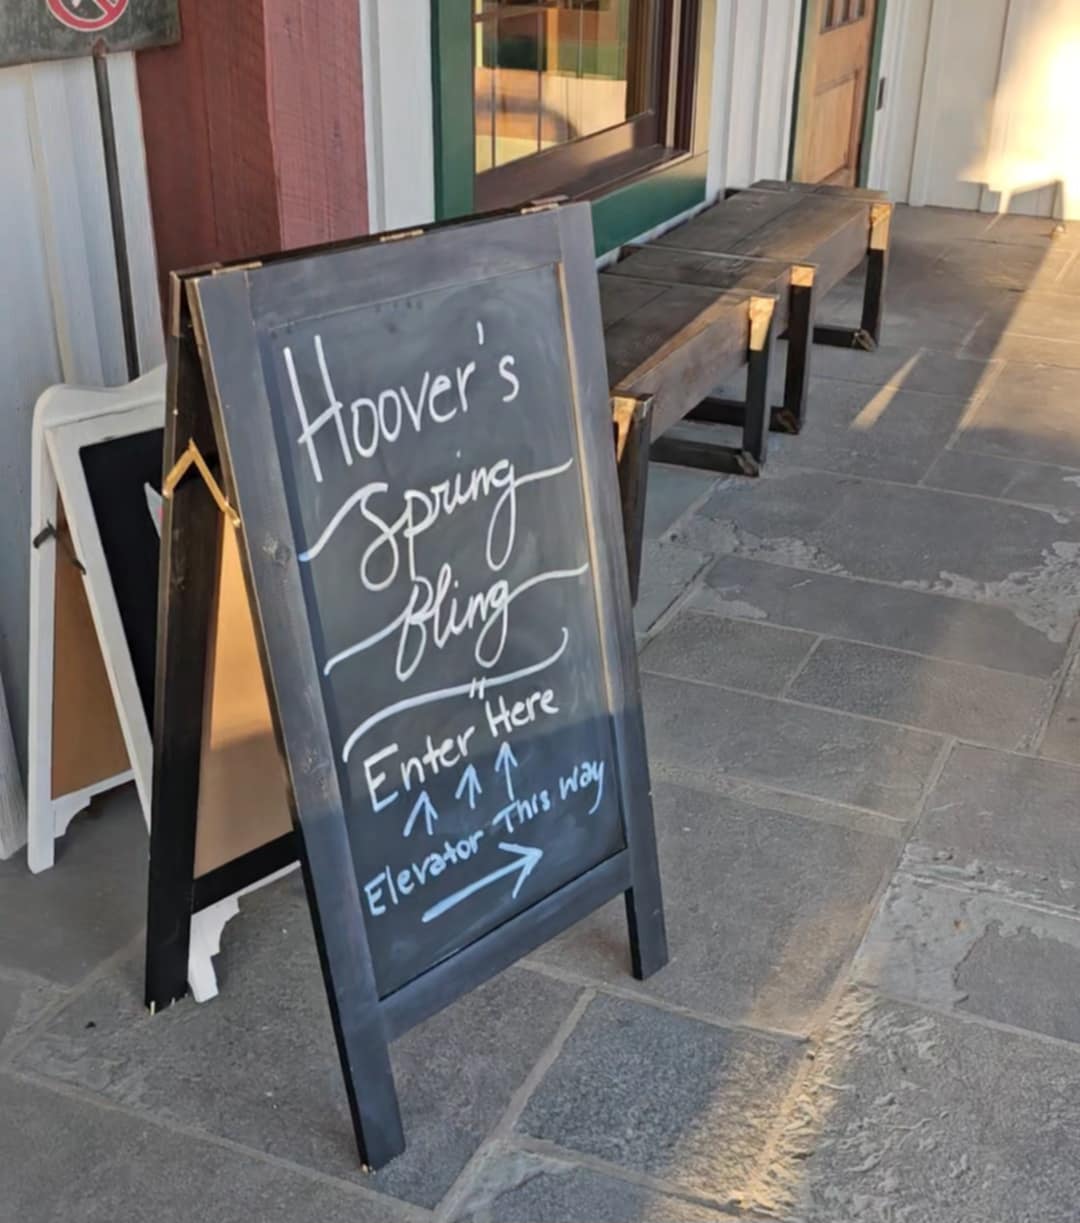 Hoover's
Spring
Bling
"
Enter Here
↑ ↑ ↑
Elevator This way
→